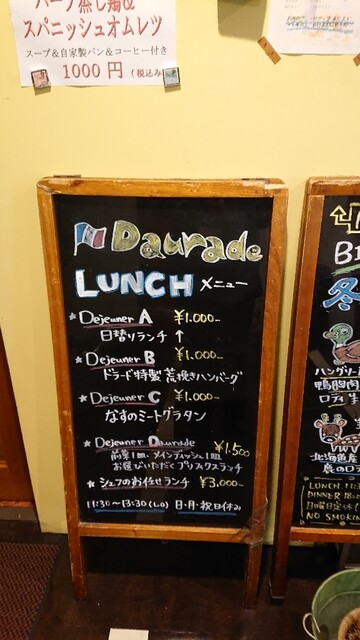 ハーブ蒸し鶏&
スパニッシュオムレツ
スープ&自家製パン&コーヒー付き
1000円(税込み)
Daurade
LUNCH メニュー
Dejeuner A ¥1.000-
日替りランチ ↑
Dejeuner B ¥1.000-
ドラード特製 荒挽きハンバーグ
Dejeuner C ¥1.000-
なすのミートグラタン
Dejeuner Daurade ¥1.500
前菜1皿、メインディッシュ1皿
お選びいただくプリフィクスランチ
シェフのお任せランチ ¥3,000-
11:30〜13:30(L.O) 日・月・祝日休み
冬
ハングリー
鴨胸肉
ロティ
北海道産
鹿のロティ
LUNCH 11:
DINNER 18:
日曜日定休
NO SMOKING